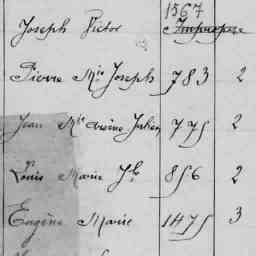 1567
Joseph Victor
Pierre Mie Joseph 783 2
Jean Mie Arsène Julien 775 2
Louis Marie Jh 856 2
Eugène Marie 1475 3